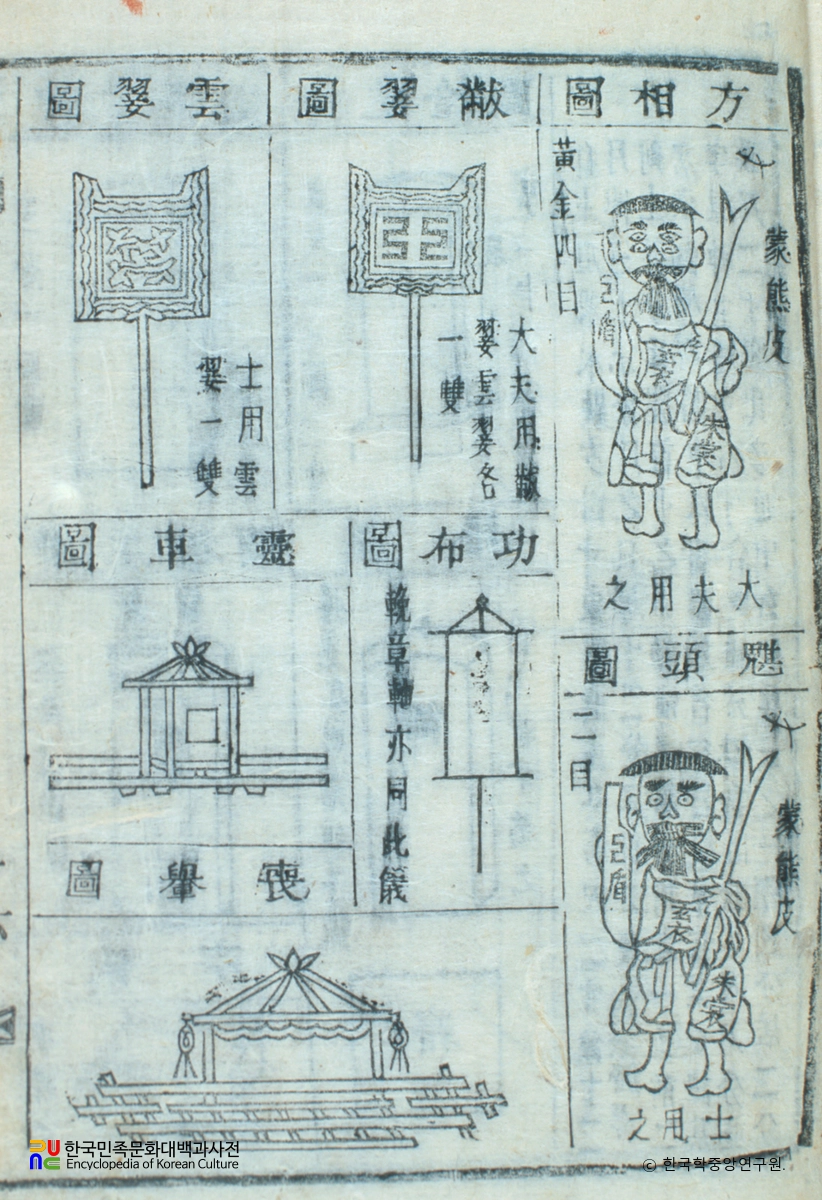 方相圖
蒙熊皮
黃金四目
玄衣
朱裳
大夫用之
魌頭圖
蒙熊皮
二目
玄衣
朱裳
士用之
黻翣圖
大夫用黻
翣雲翣各
一雙
雲翣圖
士用雲
翣一雙
功布圖
輓章軸亦同此儀
靈車圖
喪轝圖
한국민족문화대백과사전
Encyclopedia of Korean Culture
© 한국학중앙연구원.